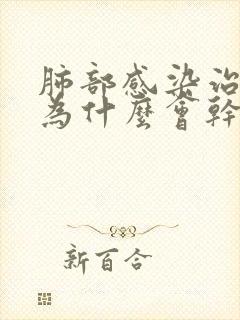 肺部感染治
為什麼會幹
新百合